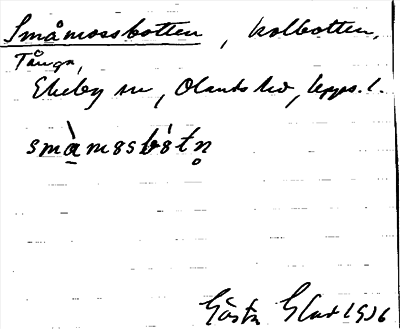 Småmossbotten, kolbotten,
Tånga,
Ekeby sn, Olands hd, Upps. l.
småmosbòtn̥
Gösta 1936